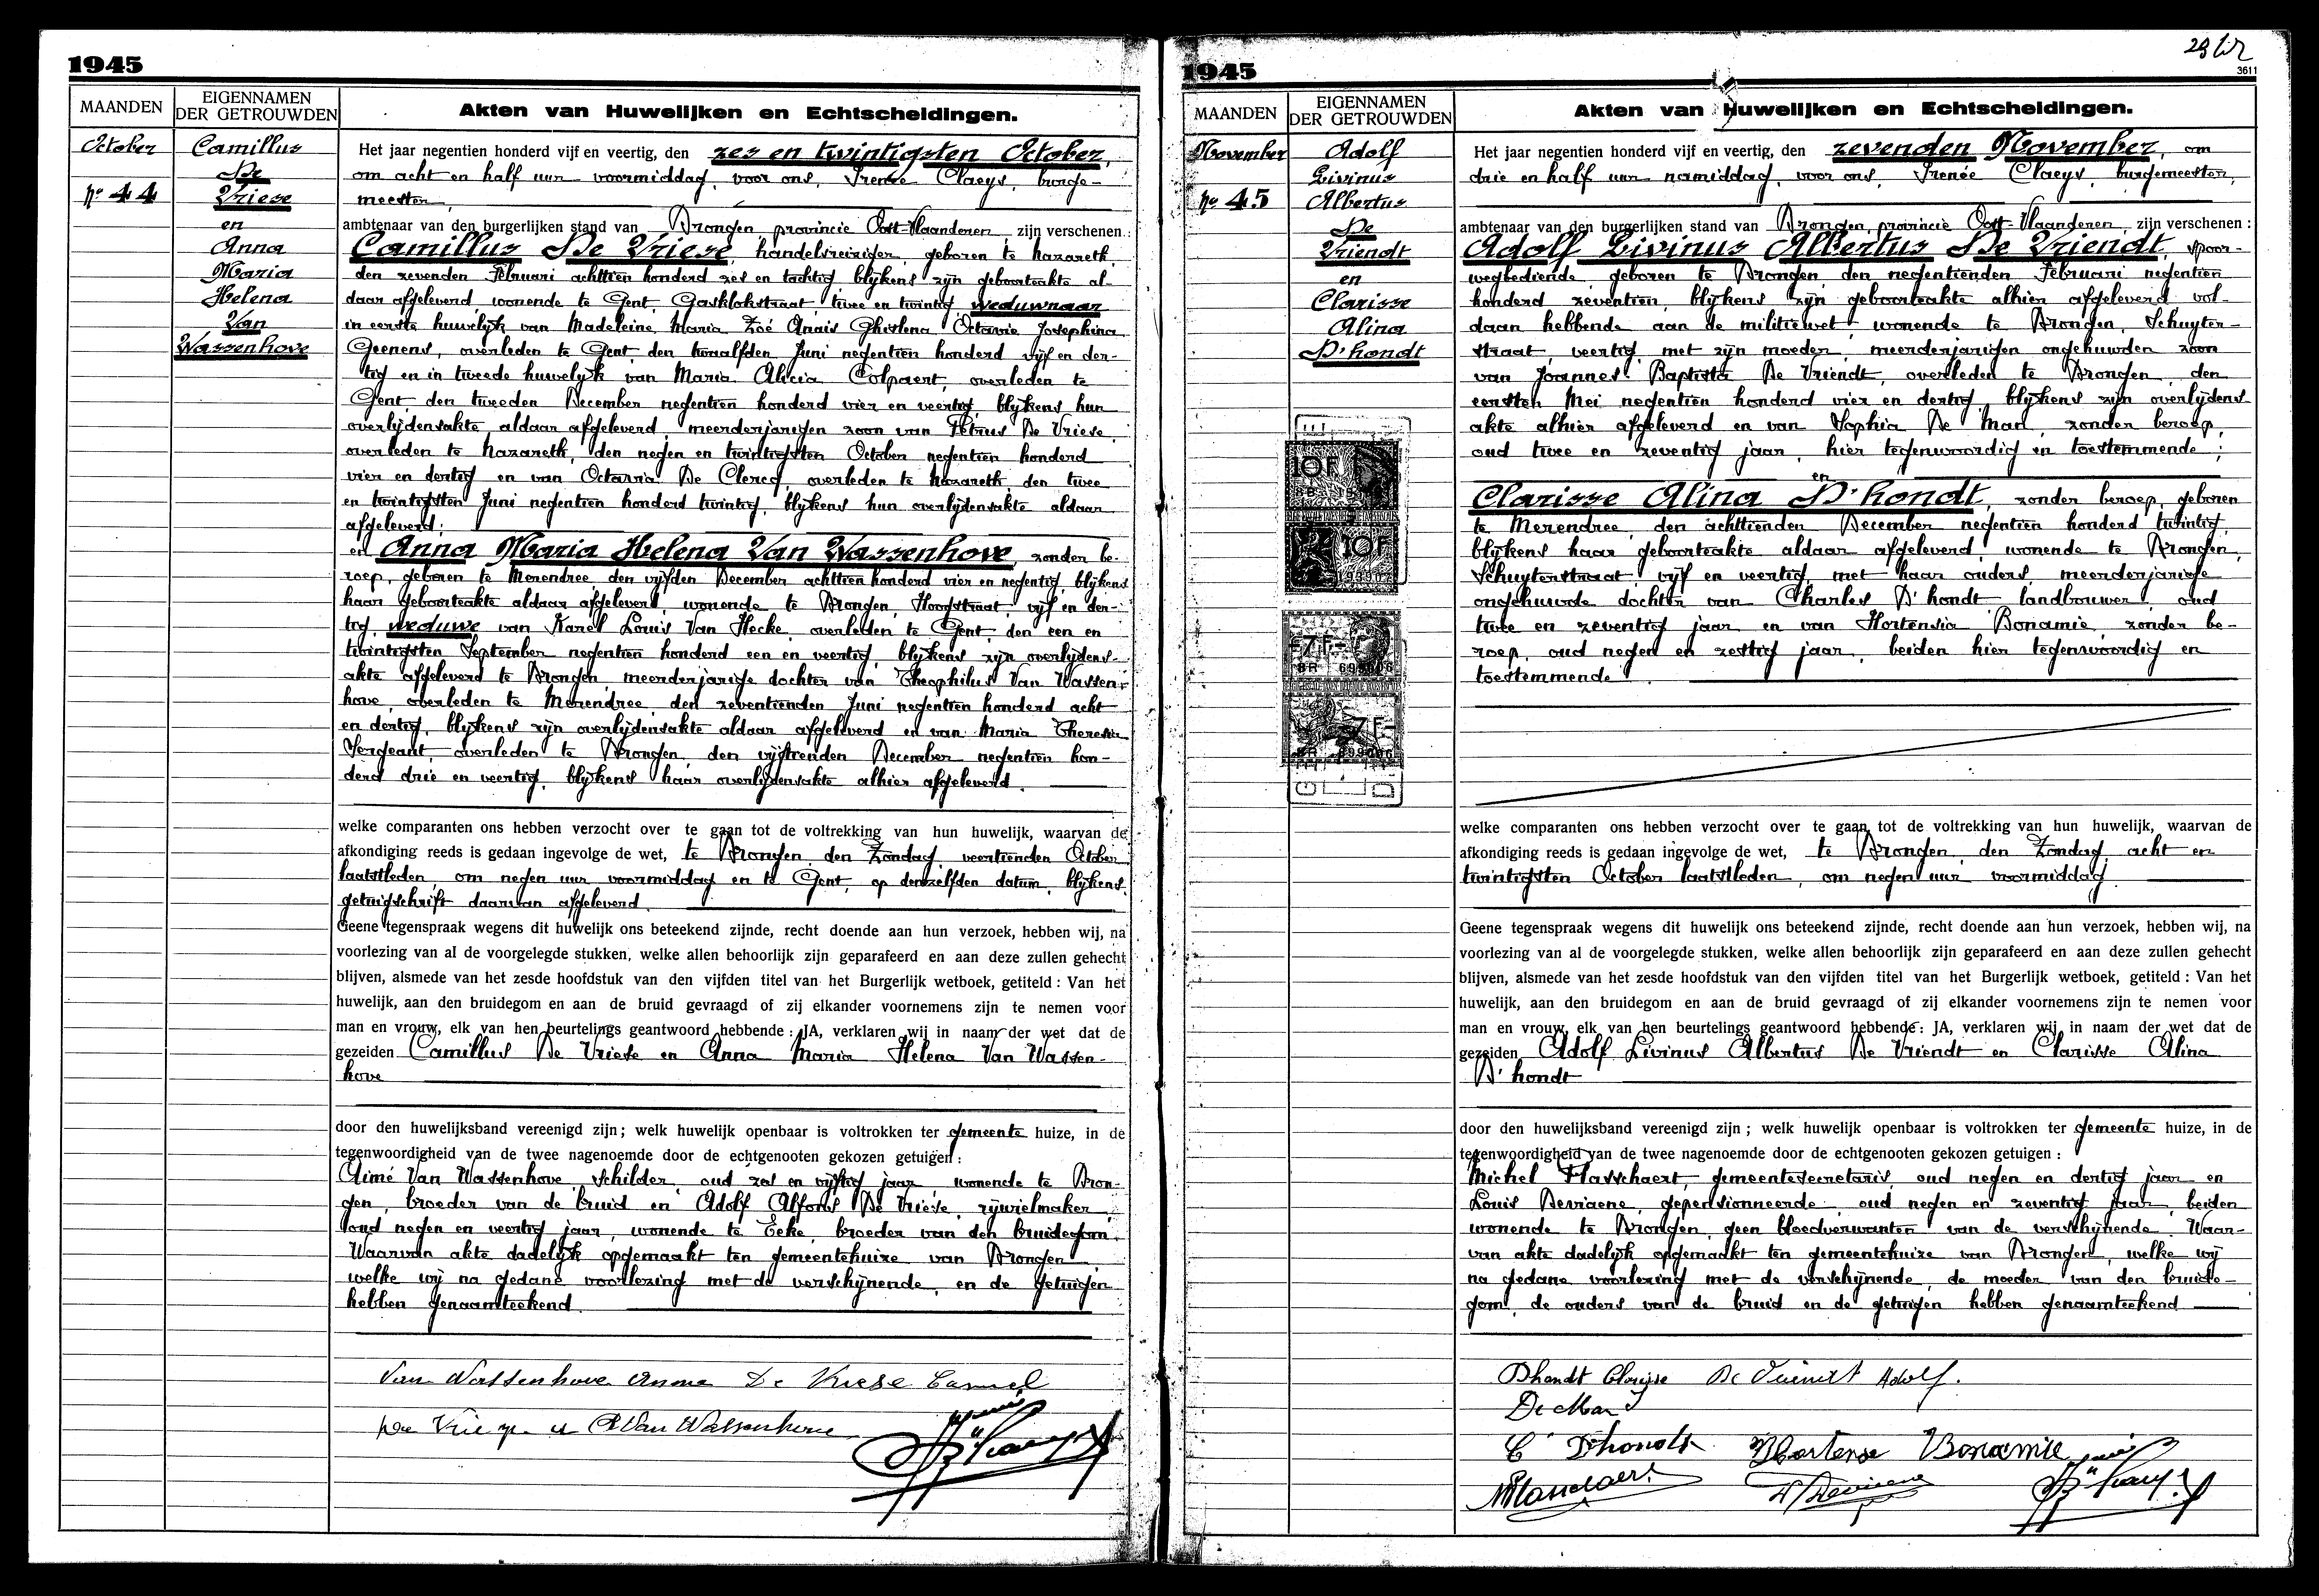 1945
MAANDEN
EIGENNAMEN
DER GETROUWDEN
Akten van Huwelijken en Echtscheidingen.
October
No 44
Camillus
De
Vriese
en
Anna
Maria
Helena
Van
Wassenhove
Het jaar negentien honderd vijf en veertig, den zes en twintigsten October,
om acht en half uur voormiddag, voor ons, Irenée Claeys, burge-
meester
ambtenaar van den burgerlijken stand van Drongen, provincie Oost-Vlaanderen, zijn verschenen :
Camillus De Vriese, handelsreiziger, geboren te Nazareth,
den zevenden Februari achttien honderd zes en tachtig, blijkens zijn geboorteakte al-
daar afgeleverd, wonende te Gent, Gasklokstraat, twee en twintig, weduwnaar
in eerste huwelijk van Madeleine Maria Zoé Anaïs Ghislena Octavie Josephina
Geenens, overleden te Gent, den twaalfden Juni negentien honderd vijf en der-
tig en in tweede huwelijk van Maria Alicia Colpaert, overleden te
Gent, den tweeden December negentien honderd vier en veertig, blijkens hun
overlijdensakte aldaar afgeleverd meerderjarigen zoon van Petrus De Vriese,
overleden te Nazareth, den negen en twintigsten October negentien honderd
vier en dertig en van Octavia De Clercq, overleden te Nazareth, den twee
en twintigsten Juni negentien honderd twintig, blijkens hun overlijdensakte aldaar
afgeleverd;
en Anna Maria Helena Van Wassenhove, zonder be-
roep, geboren te Merendree, den vijfden December achttien honderd vier en negentig, blijkens
haar geboorteakte aldaar afgeleverd, wonende te Drongen, Hoogstraat, vijf en der-
tig, weduwe van Karel Louis Van Hecke, overleden te Gent, den een en
twintigsten September negentien honderd een en veertig, blijkens zijn overlijdens-
akte afgeleverd te Drongen, meerderjarige dochter van Theophilus Van Wassen-
hove, overleden te Merendree, den zeventienden Juni negentien honderd acht
en dertig, blijkens zijn overlijdensakte aldaar afgeleverd en van Maria Theresia
Sergeant, overleden te Drongen, den vijftienden December negentien hon-
derd drie en veertig, blijkens haar overlijdensakte alhier afgeleverd.
welke comparanten ons hebben verzocht over te gaan tot de voltrekking van hun huwelijk, waarvan de
afkondiging reeds is gedaan ingevolge de wet, te Drongen, den Zondag, veertienden October
laatstleden, om negen uur voormiddag en te Gent, op denzelfden datum, blijkens
getuigschrift daarvan afgeleverd.
Geene tegenspraak wegens dit huwelijk ons beteekend zijnde, recht doende aan hun verzoek, hebben wij, na
voorlezing van al de voorgelegde stukken, welke allen behoorlijk zijn geparafeerd en aan deze zullen gehecht
blijven, alsmede van het zesde hoofdstuk van den vijfden titel van het Burgerlijk wetboek, getiteld : Van het
huwelijk, aan den bruidegom en aan de bruid gevraagd of zij elkander voornemens zijn te nemen voor
man en vrouw, elk van hen beurtelings geantwoord hebbende : JA, verklaren wij in naam der wet dat de
gezeiden Camillus De Vriese en Anna Maria Helena Van Wassen-
hove
door den huwelijksband vereenigd zijn ; welk huwelijk openbaar is voltrokken ter gemeente huize, in de
tegenwoordigheid van de twee nagenoemde door de echtgenooten gekozen getuigen :
Aimé Van Wassenhove, schilder, oud zes en vijftig jaar, wonende te Dron-
gen, broeder van de bruid en Adolf Alfons De Vriese, rijwielmaker,
oud negen en veertig jaar, wonende te Eeke, broeder van den bruidegom.
Waarvan akte dadelijk opgemaakt ten gemeentehuize van Drongen,
welke wij na gedane voorlezing met de verschijnende, en de getuigen
hebben genaamteekend.
Van Wassenhove Anna De Vriese Camiel
De Vriese A Van Wassenhove
1945
29
3611
MAANDEN
EIGENNAMEN
DER GETROUWDEN
Akten van Huwelijken en Echtscheidingen.
November
No 45
Adolf
Livinus
Albertus
De
Vriendt
en
Clarisse
Alina
D'hondt
10F
10F
7F
7F
Het jaar negentien honderd vijf en veertig, den zevenden November, om
drie en half uur namiddag, voor ons, Irenée Claeys, burgemeester,
ambtenaar van den burgerlijken stand van Drongen, provincie Oost-Vlaanderen, zijn verschenen :
Adolf Livinus Albertus De Vriendt, spoor-
wegbediende, geboren te Drongen, den negentienden Februari negentien
honderd zeventien, blijkens zijn geboorteakte alhier afgeleverd vol-
daan hebbende aan de militiewet wonende te Drongen, Schuyten-
straat, veertig, met zijn moeder, meerderjarigen ongehuwden zoon
van Joannes Baptista De Vriendt, overleden te Drongen, den
eersten Mei negentien honderd vier en dertig, blijkens zijn overlijdens
akte alhier afgeleverd en van Sophia De Mael, zonder beroep,
oud twee en zeventig jaar, hier tegenwoordig en toestemmende;
en
Clarisse Alina D'hondt, zonder beroep, geboren
te Merendree, den achttienden December negentien honderd twintig,
blijkens haar geboorteakte aldaar afgeleverd, wonende te Drongen,
Schuytenstraat, vijf en veertig, met haar ouders, meerderjarige
ongehuwde dochter van Charles D'hondt, landbouwer, oud
twee en zeventig jaar en van Hortensia Bonamie, zonder be-
roep, oud negen en zestig jaar, beiden hier tegenwoordig en
toestemmende.
welke comparanten ons hebben verzocht over te gaan tot de voltrekking van hun huwelijk, waarvan de
afkondiging reeds is gedaan ingevolge de wet, te Drongen, den Zondag, acht en
twintigsten October laatstleden, om negen uur voormiddag.
Geene tegenspraak wegens dit huwelijk ons beteekend zijnde, recht doende aan hun verzoek, hebben wij, na
voorlezing van al de voorgelegde stukken, welke allen behoorlijk zijn geparafeerd en aan deze zullen gehecht
blijven, alsmede van het zesde hoofdstuk van den vijfden titel van het Burgerlijk wetboek, getiteld : Van het
huwelijk, aan den bruidegom en aan de bruid gevraagd of zij elkander voornemens zijn te nemen voor
man en vrouw, elk van hen beurtelings geantwoord hebbende : JA, verklaren wij in naam der wet dat de
gezeiden Adolf Livinus Albertus De Vriendt en Clarisse Alina
D'hondt
door den huwelijksband vereenigd zijn ; welk huwelijk openbaar is voltrokken ter gemeente huize, in de
tegenwoordigheid van de twee nagenoemde door de echtgenooten gekozen getuigen :
Michel Flasschaert, gemeentesecretaris, oud negen en dertig jaar en
Louis Devriaene, gepensionneerde, oud negen en zeventig jaar, beiden
wonende te Drongen, geen bloedverwanten van de verschijnende. Waar-
van akte dadelijk opgemaakt ten gemeentehuize van Drongen, welke wij
na gedane voorlezing met de verschijnende, de moeder van den bruide-
gom, de ouders van de bruid en de getuigen hebben genaamteekend
Dhondt Clarisse De Vriendt Adolf.
C Dhondt Hortense Bonamie